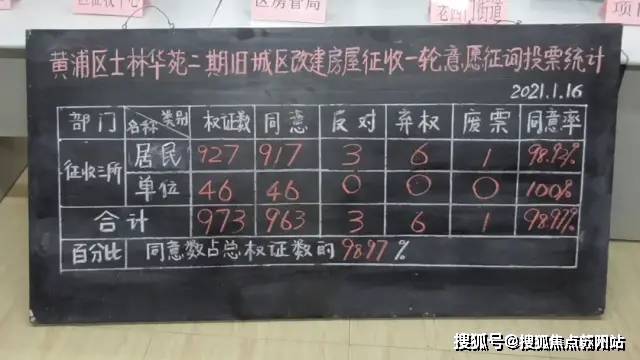 区房管局
老西门街道
黄浦区士林华苑二期旧城区改建房屋征收一轮意愿征询投票统计
2021.1.16
部门 名称 类别 权证数 同意 反对 弃权 废票 同意率
征收三所 居民 927 917 3 6 1 98.92%
单位 46 46 0 0 0 100%
合计 973 963 3 6 1 98.97%
百分比 同意数占总权证数的 98.97 %
搜狐号@搜狐焦点